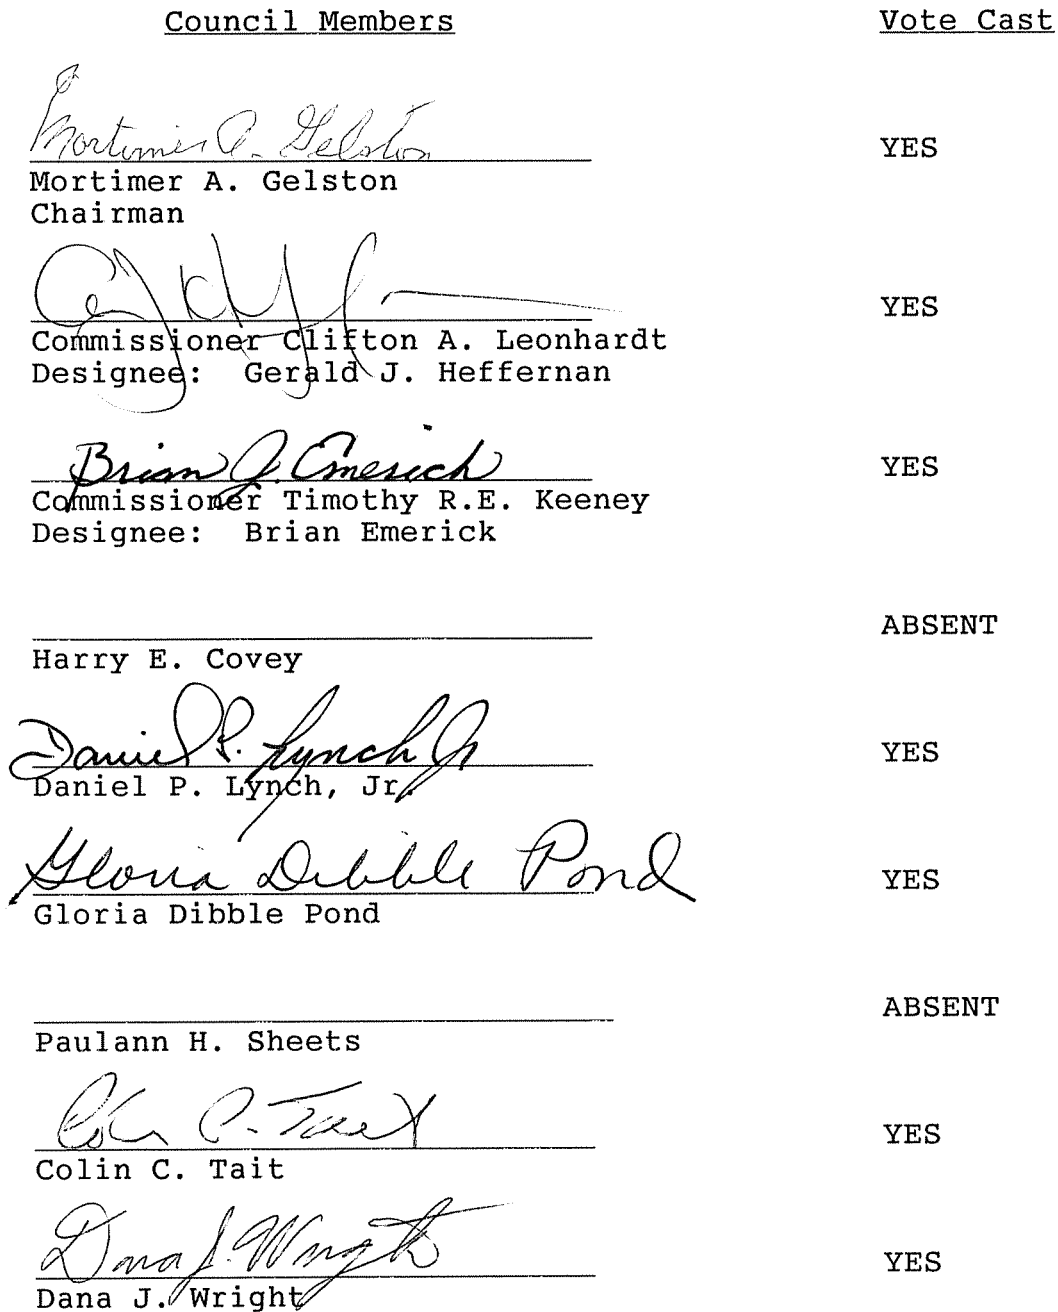 Council Members Vote Cast
Mortimer A. Gelston YES
Mortimer A. Gelston
Chairman
YES
Commissioner Clifton A. Leonhardt
Designee: Gerald J. Heffernan
Brian J. Emerick YES
Commissioner Timothy R.E. Keeney
Designee: Brian Emerick
ABSENT
Harry E. Covey
Daniel P. Lynch Jr YES
Daniel P. Lynch, Jr.
Gloria Dibble Pond YES
Gloria Dibble Pond
ABSENT
Paulann H. Sheets
Colin C. Tait YES
Colin C. Tait
Dana J. Wright YES
Dana J. Wright